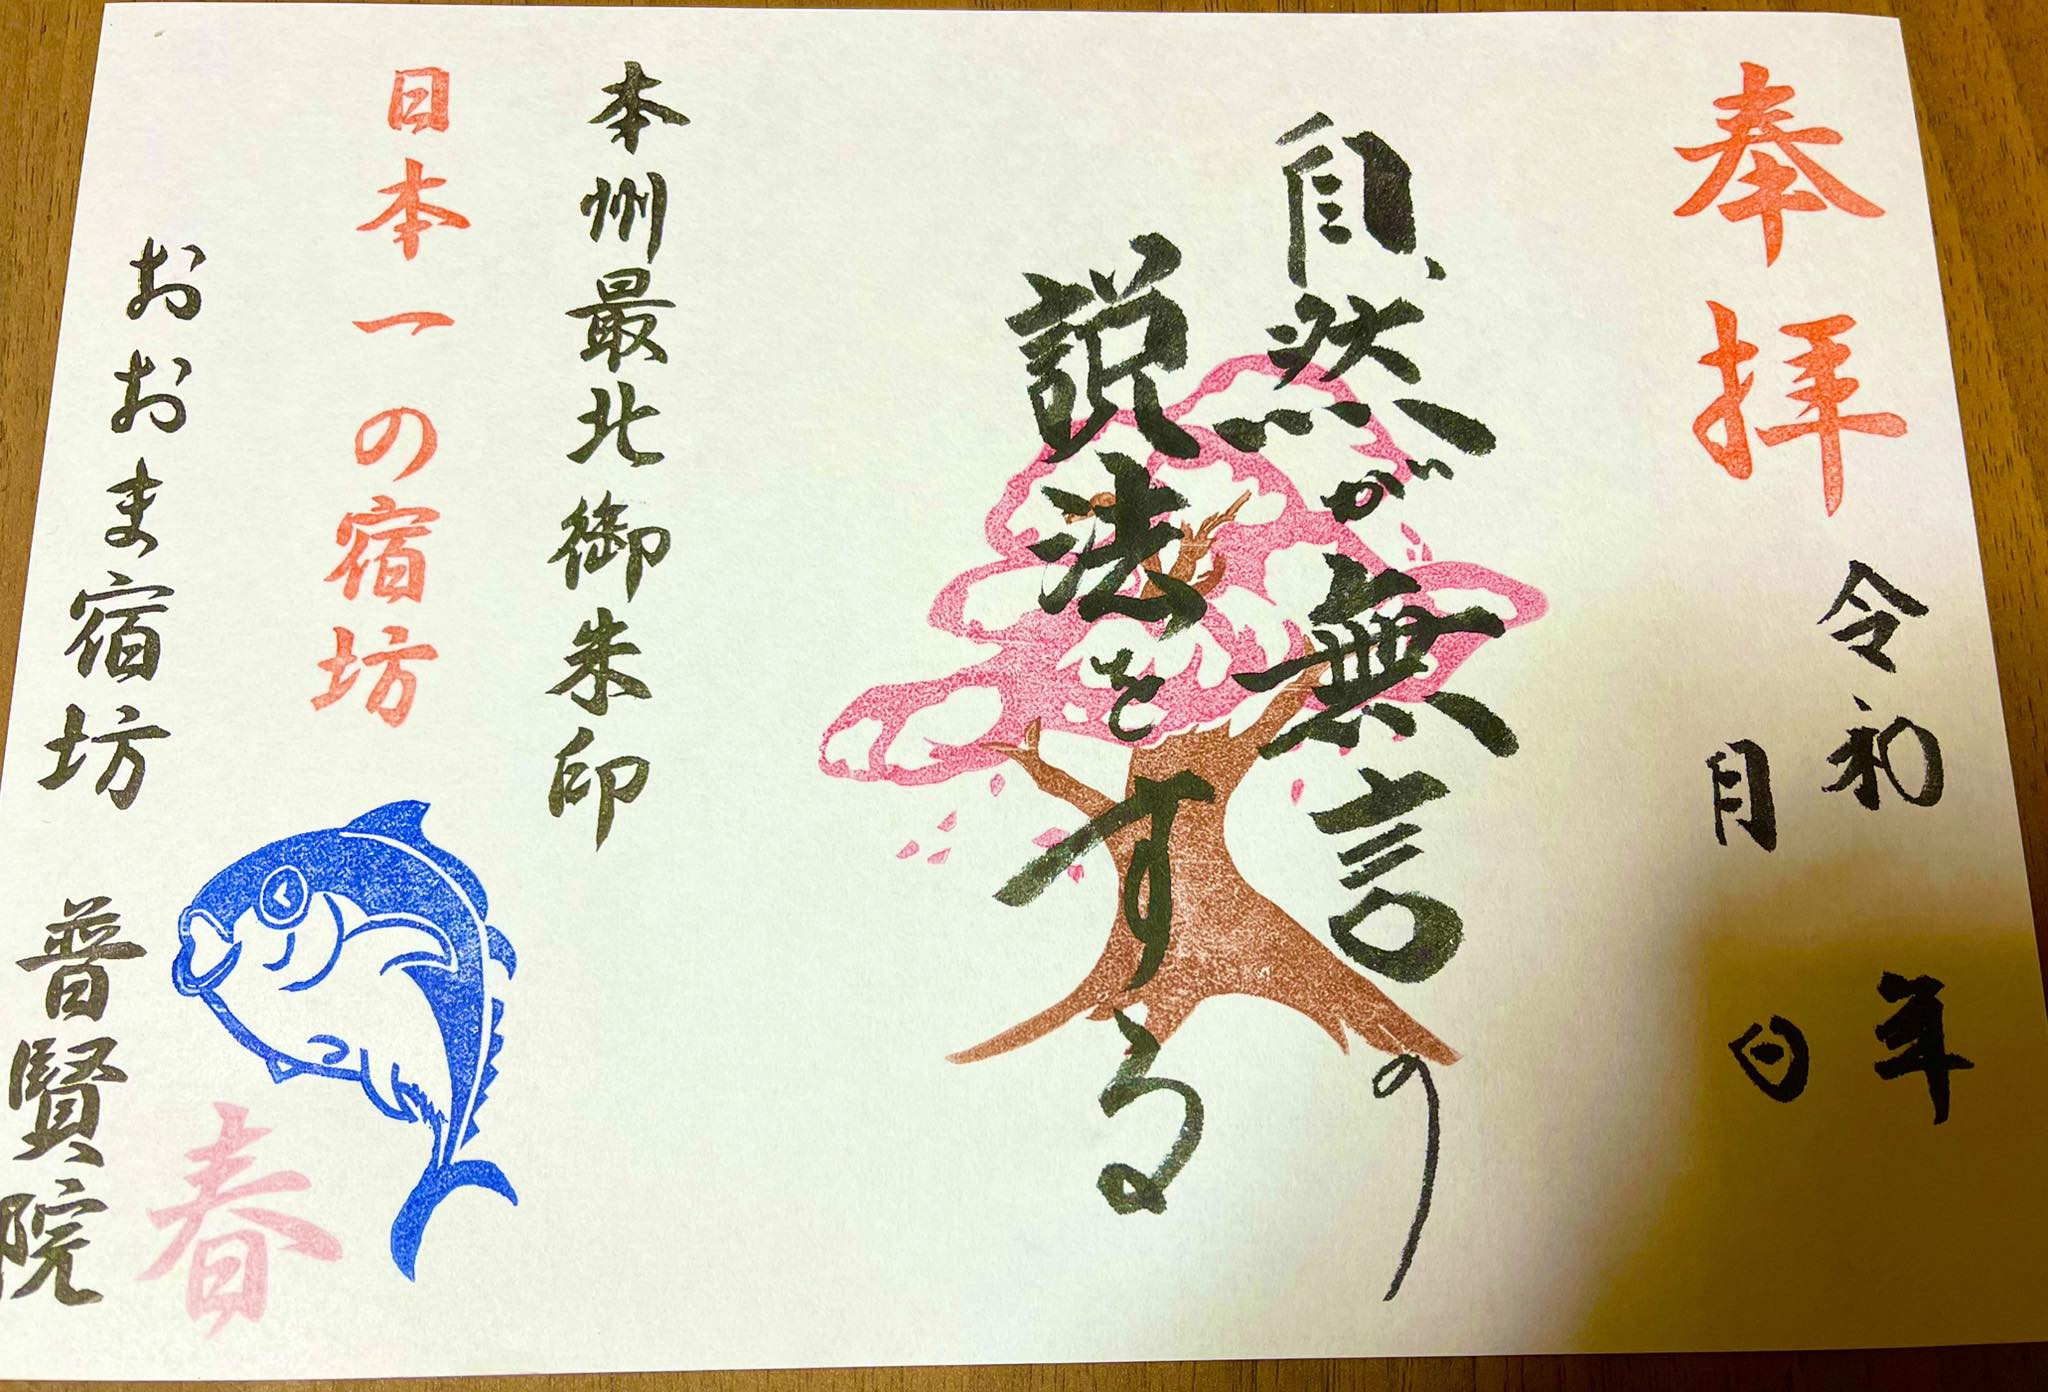 奉拝
令和 年
月 日
自然が無言の
説法をする
本州最北御朱印
日本一の宿坊
おおま宿坊 普賢院
春